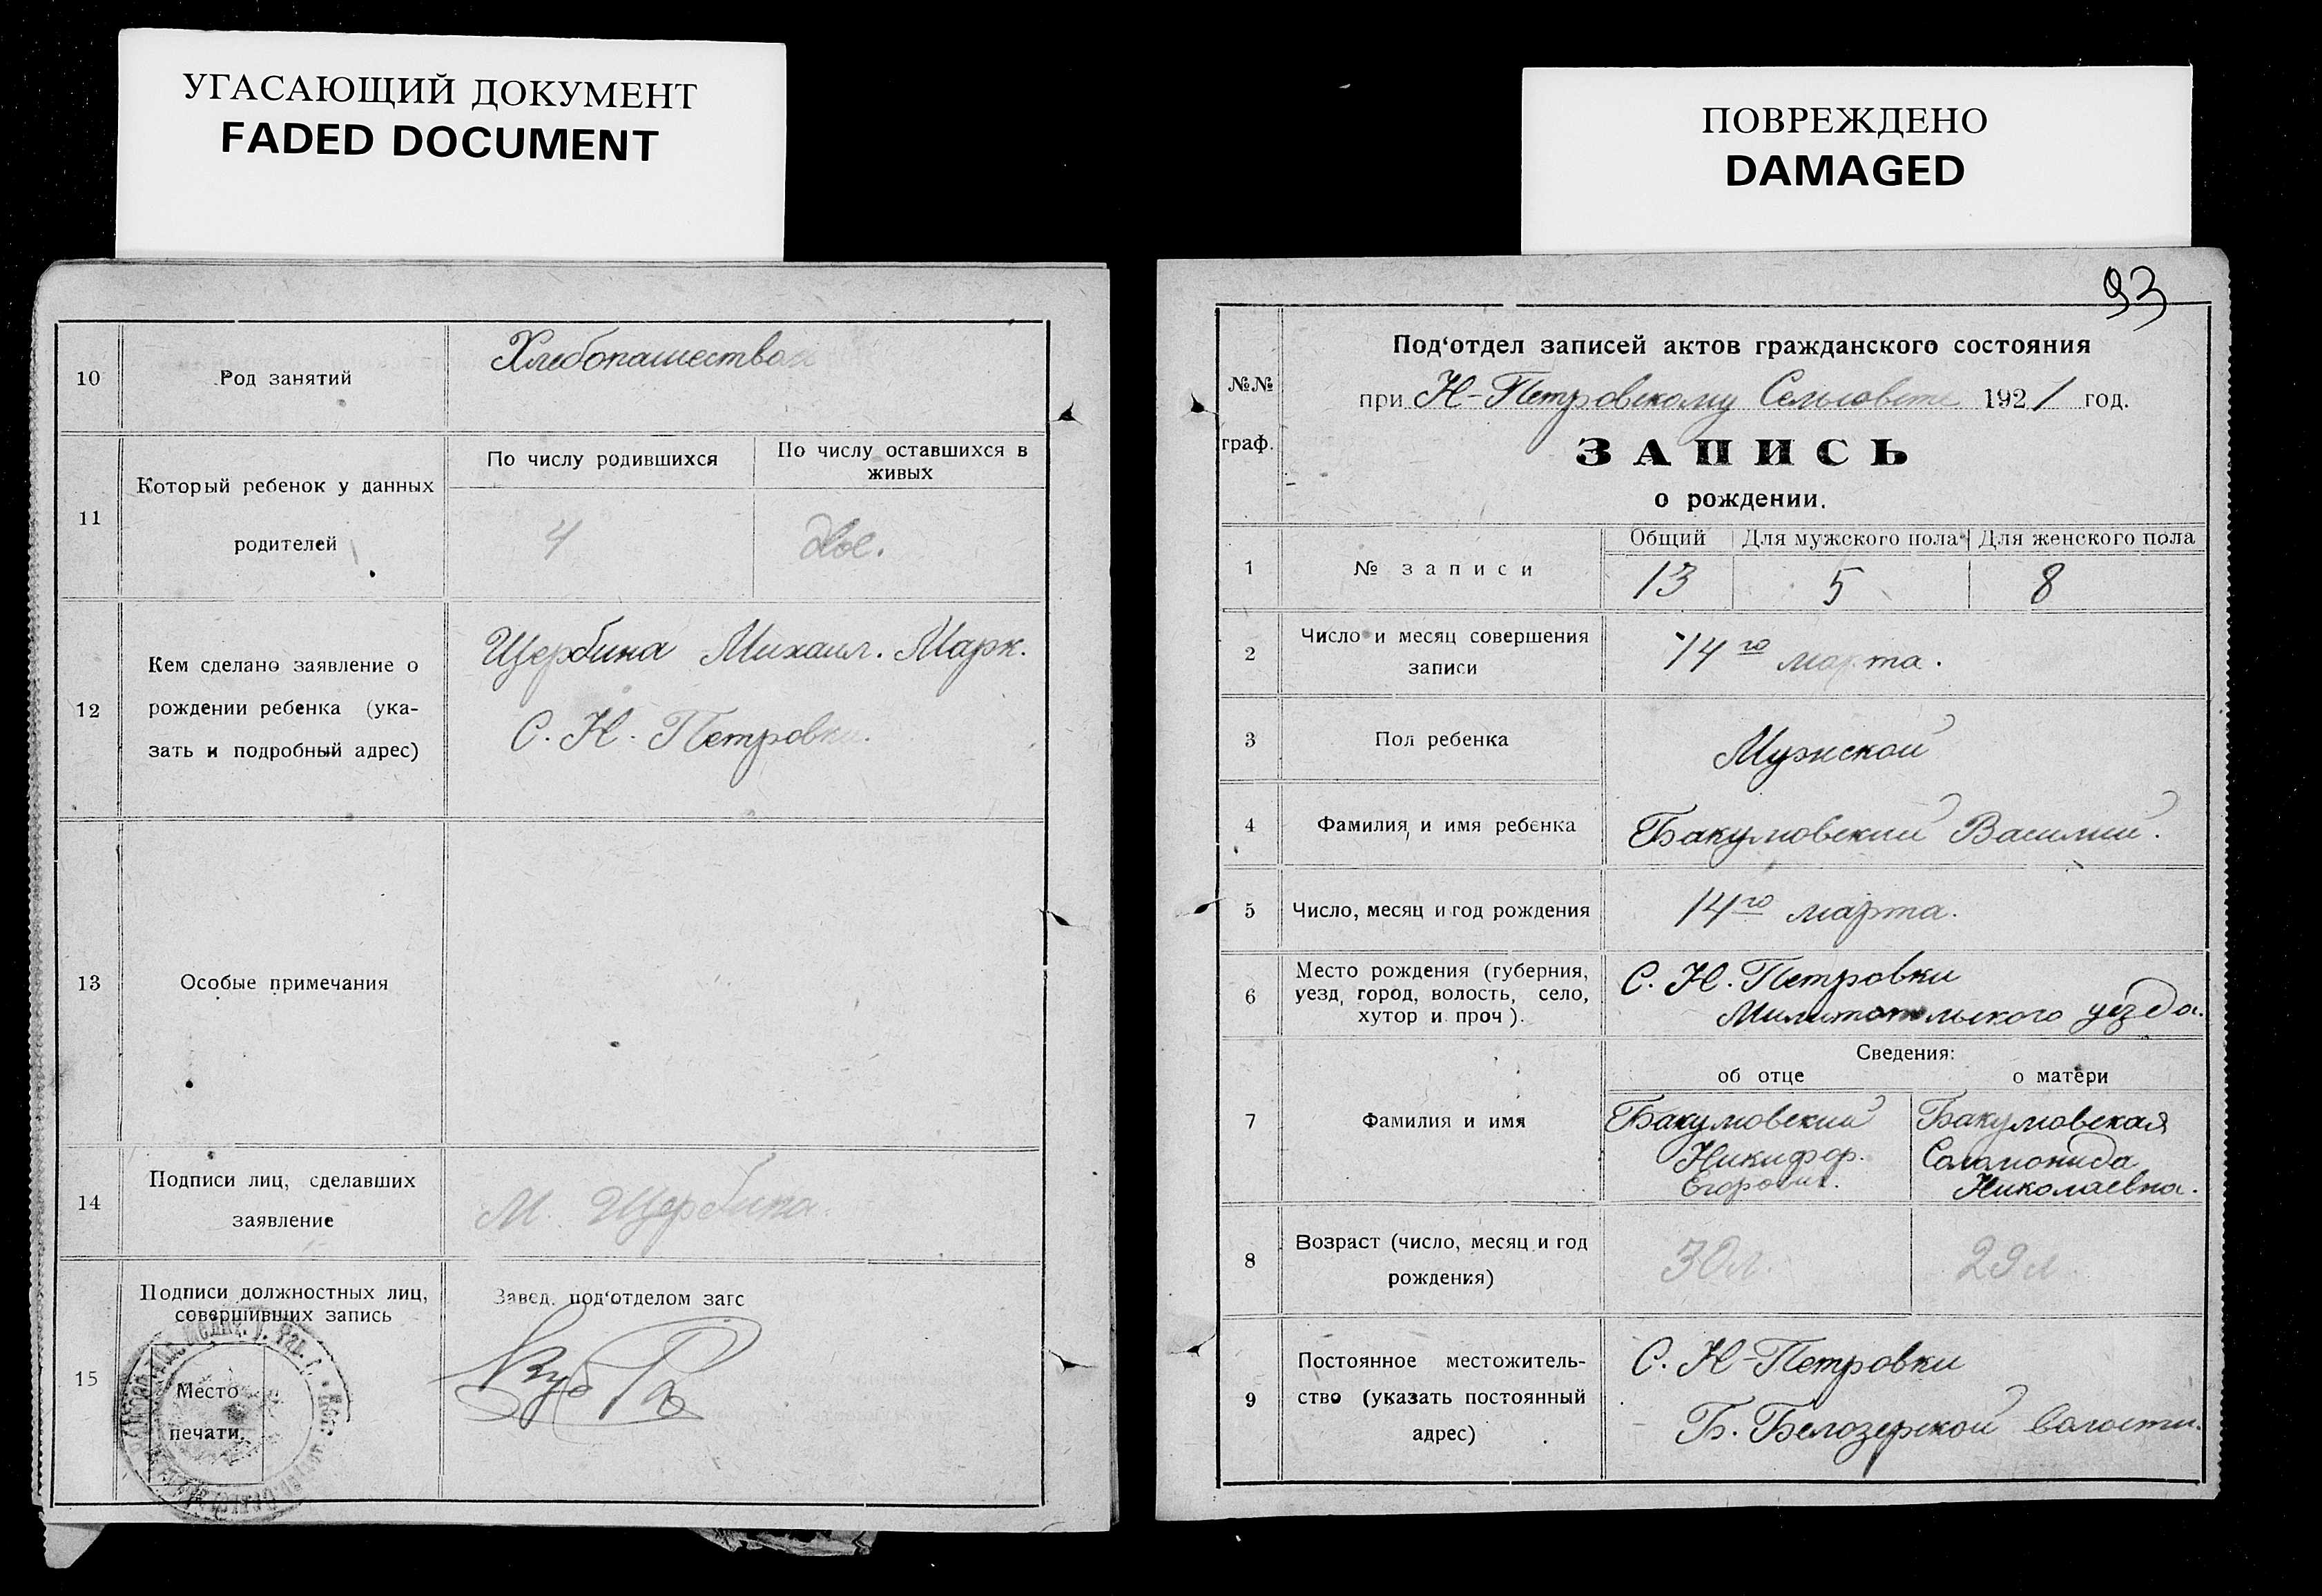 УГАСАЮЩИЙ ДОКУМЕНТ
FADED DOCUMENT
10
Род занятий
Хлебопашество
11
Который ребенок у данных
родителей
По числу родившихся
По числу оставшихся в
живых
4
двое.
12
Кем сделано заявление о
рождении ребенка (ука-
зать и подробный адрес)
Щербина Михаил. Марк.
С. Н. Петровки.
13
Особые примечания
14
Подписи лиц, сделавших
заявление
М. Щербина.
15
Подписи должностных лиц,
совершивших запись
Место
печати.
Завед. под‘отделом загс
ПОВРЕЖДЕНО
DAMAGED
93
№№
граф.
Под‘отдел записей актов гражданского состояния
при Н-Петровскому Сельсовете 1921 год.
ЗАПИСЬ
о рождении.
1
№ записи
Общий Для мужского пола Для женского пола
13 5 8
2
Число и месяц совершения
записи
14го марта.
3
Пол ребенка
Мужской
4
Фамилия и имя ребенка
Бакумовский Василий.
5
Число, месяц и год рождения
14го марта.
6
Место рождения (губерния,
уезд, город, волость, село,
хутор и проч).
С. Н. Петровки
уезда.
Сведения:
об отце о матери
7
Фамилия и имя
Бакумовский
Никифор.
Егорович.
Бакумовская
Соломонида
Николаевна.
8
Возраст (число, месяц и год
рождения)
30л. 29л
9
Постоянное местожитель-
ство (указать постоянный
адрес)
С. Н-Петровки
Б. Белозерской волости.